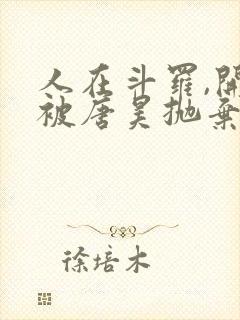 人在斗羅,開
被唐昊拋棄
徐培木